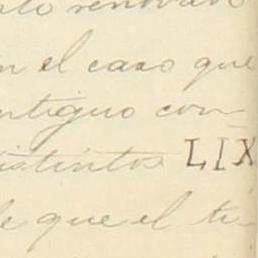 to renovado
n el caso que
ntiguo con-
istintos LIX
e que el tu